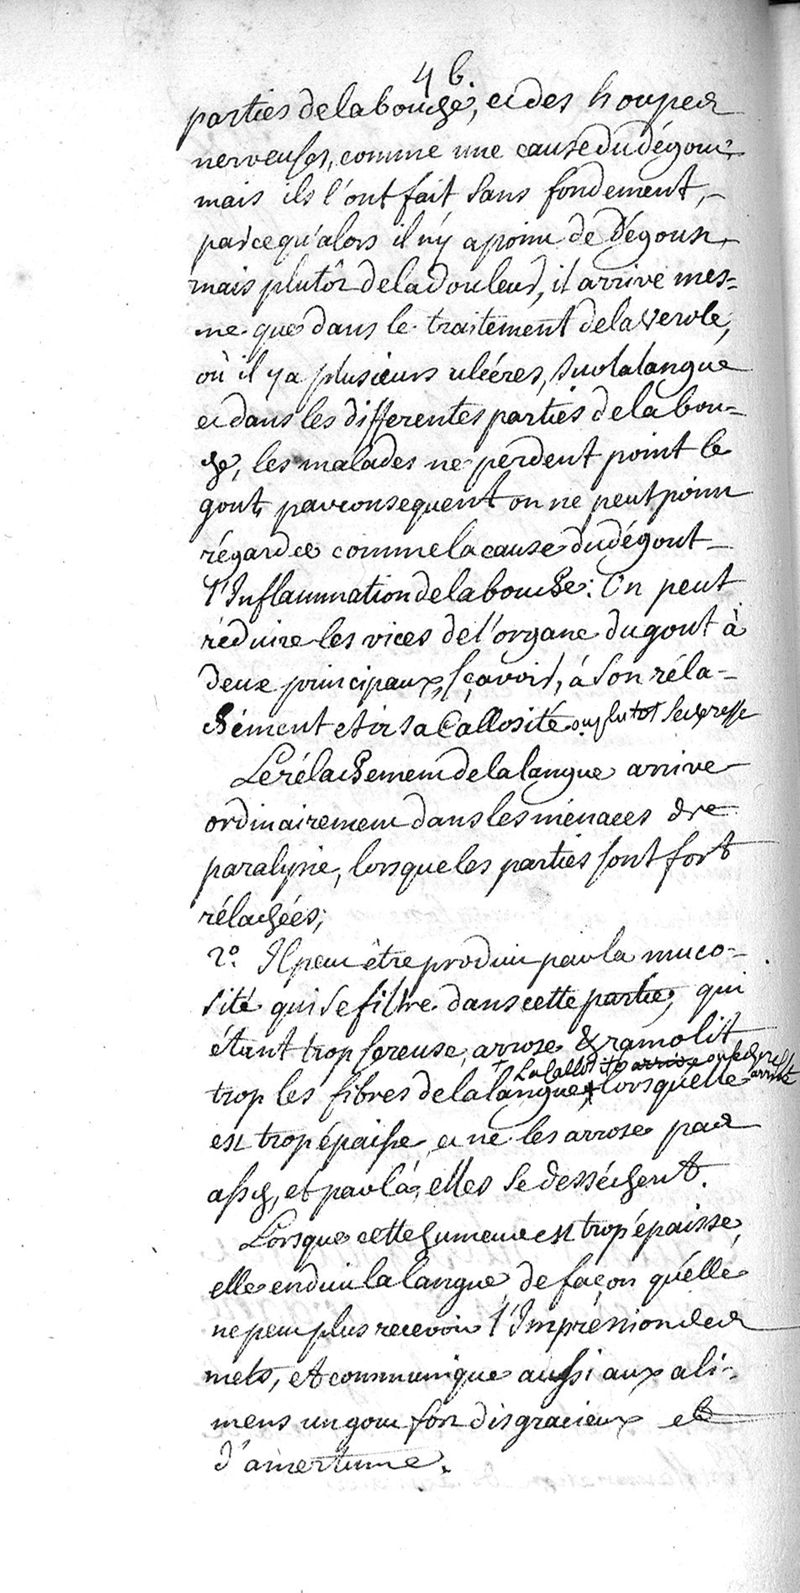 46.
parties de la bouche, et des houpes
nerveuses, comme une cause du dégout,
mais ils l'ont fait sans fondement,
parcequ'alors il n'y a point de dégoust,
mais plutôt de la douleur, il arrive mes=
me que dans le traitement de la verole,
où il y a plusieurs ulcéres, sur la langue
et dans les differentes parties de la bou=
che, les malades ne perdent point le
gout, par consequent on ne peut point
régarder comme la cause du dégout
l'Inflammation de la bouche: On peut
réduire les vices de l'organe du gout à
deux principaux, sçavoir, à son réla=
chément et à sa Callosité ou plutot secheresse
Le rélachement de la langue arrive
ordinairement dans les ménaces de
paralysie, lorsque les parties sont fort
rélachées;
2º. Il peut être produit par la muco=
sité qui se filtre dans cette partie, qui
étant trop sereuse, arrose & ramolit
La Callosité arrive ou secheresse arrive
trop les fibres de la langue + lorsquelle
est trop épaisse et ne les arrose pas
assez, et par là, elles se desséchent.
Lorsque cette humeur est trop épaisse,
elle enduit la langue, de façon qu'elle
ne peut plus recevoir l'Impréssion des
mets, et communique aussi aux ali=
mens un gout fort disgracieux et
d'amertume.